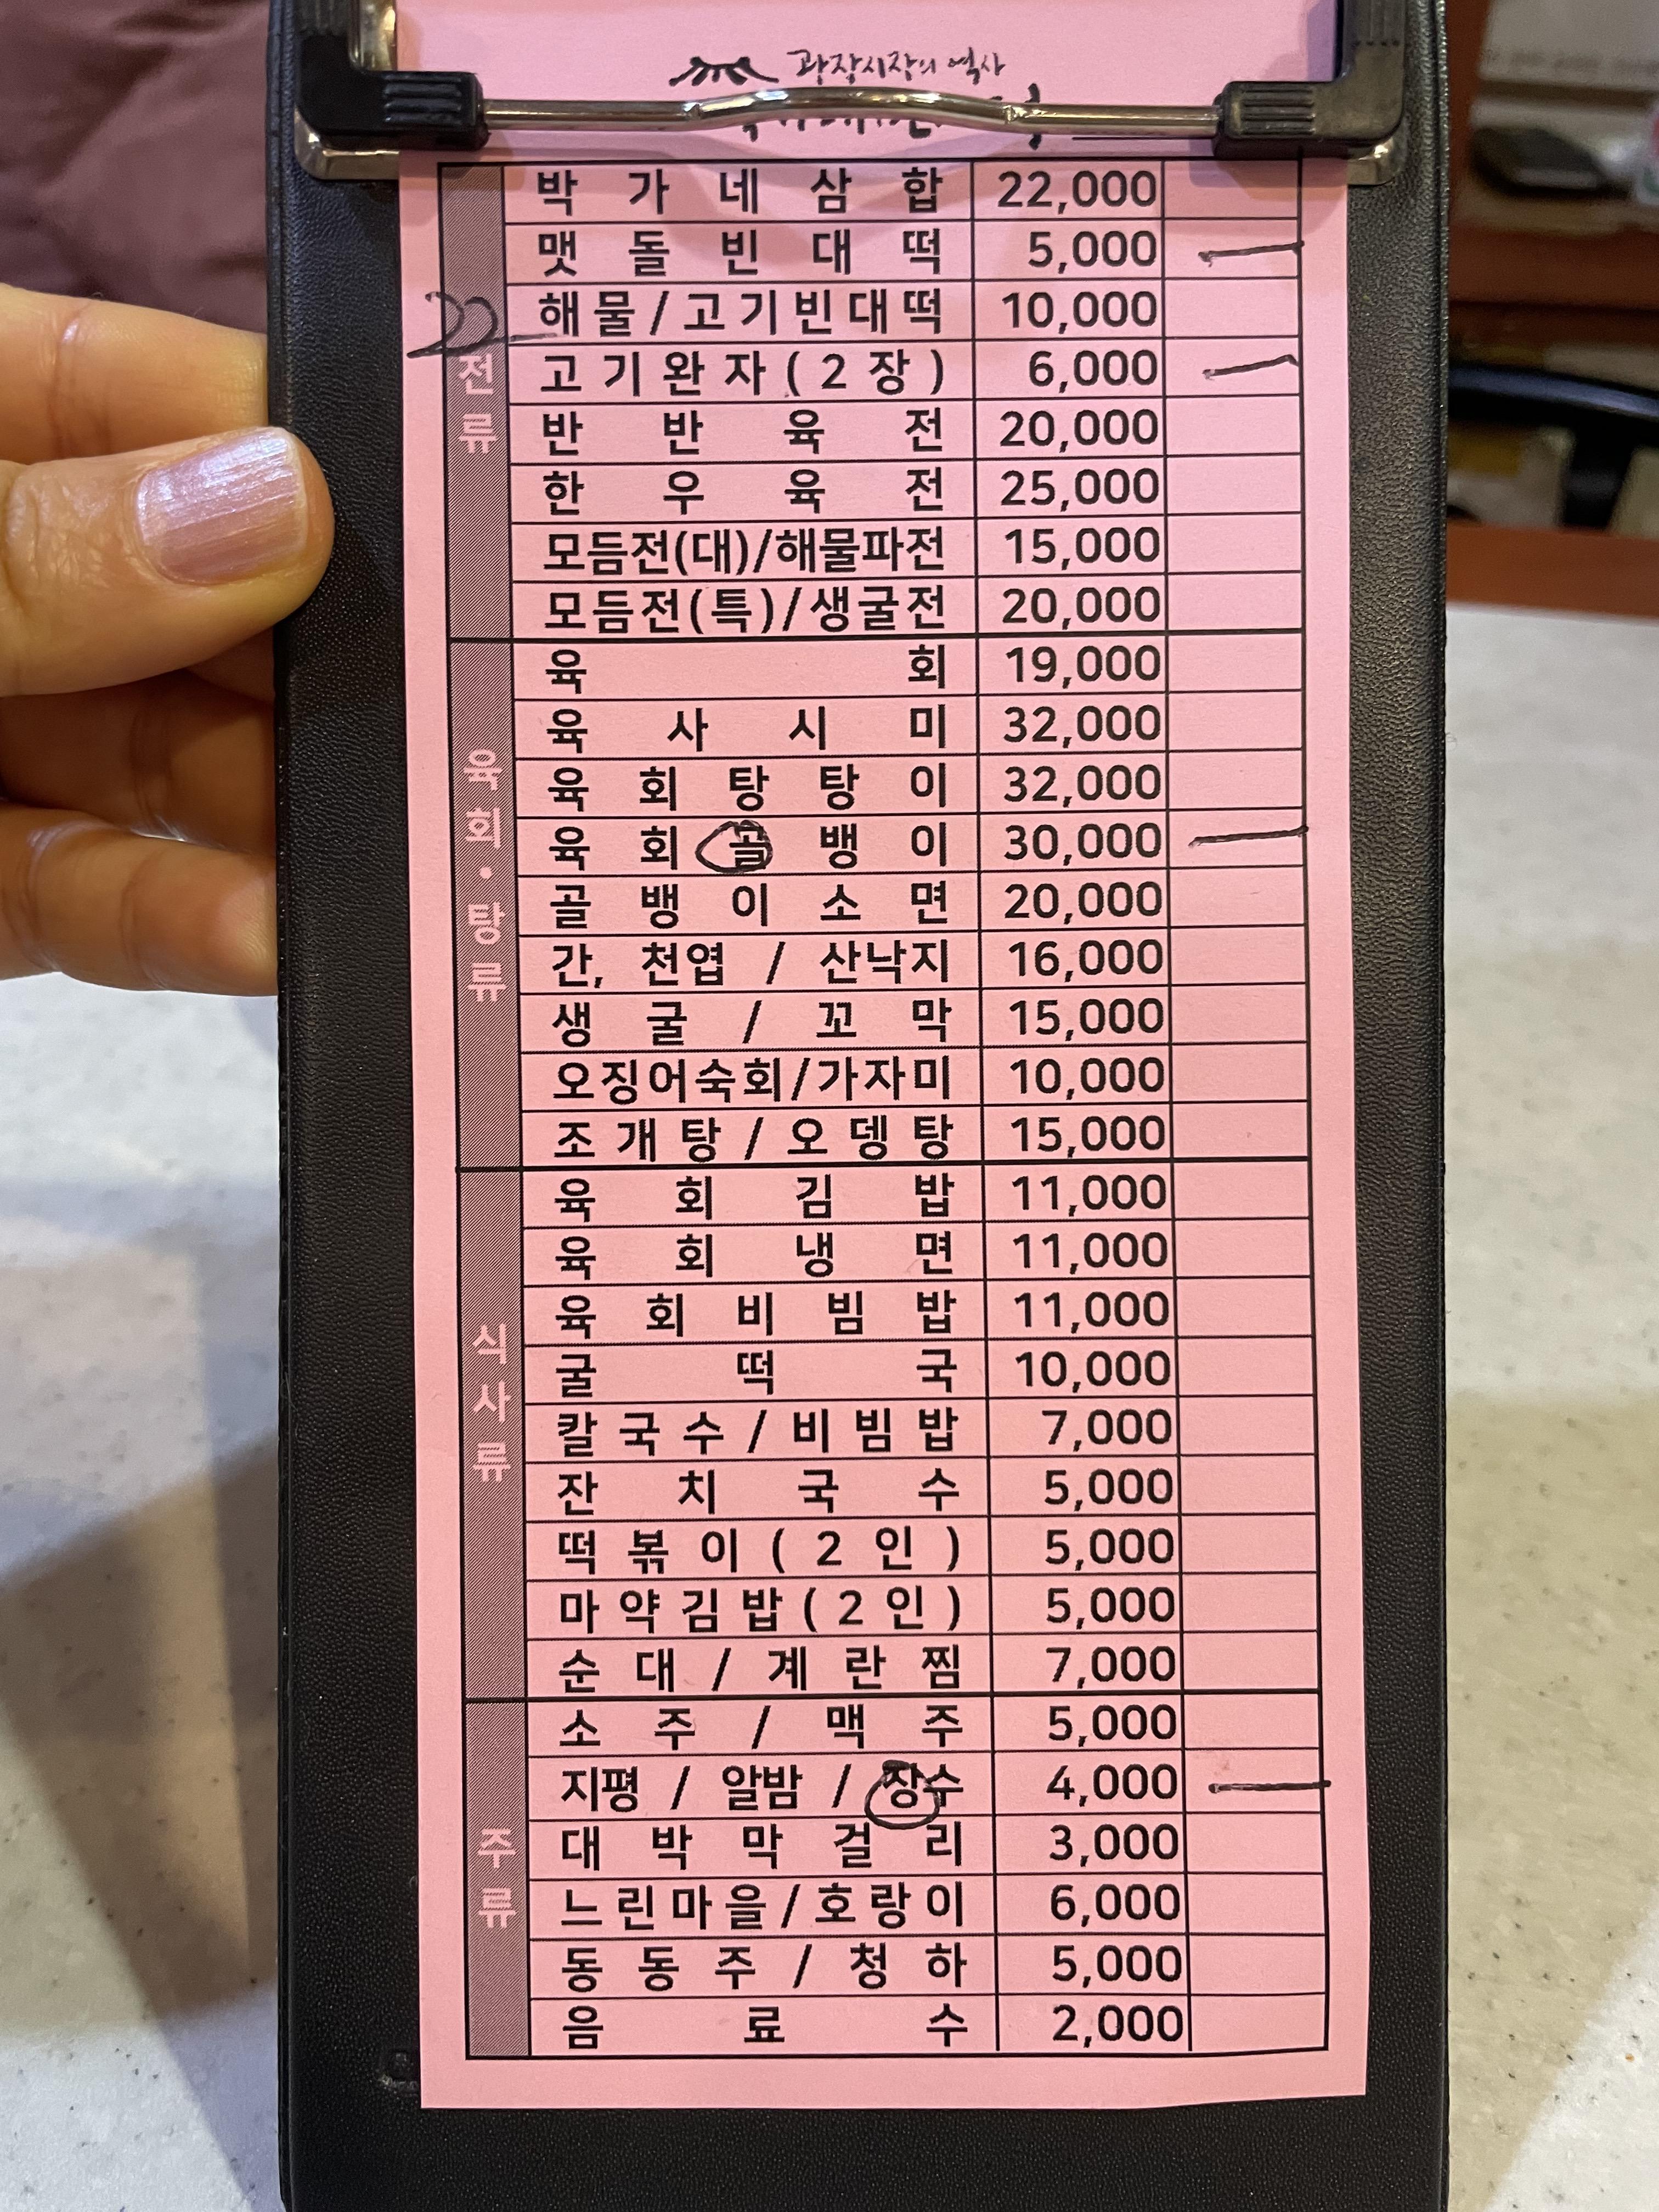 광장시장의 역사
박가네삼합 22,000
맷돌빈대떡 5,000
22 해물/고기빈대떡 10,000
고기완자(2장) 6,000
반반육전 20,000
한우육전 25,000
모듬전(대)/해물파전 15,000
모듬전(특)/생굴전 20,000
전류
육회 19,000
육사시미 32,000
육회탕탕이 32,000
육회골뱅이 30,000
골뱅이소면 20,000
간, 천엽 / 산낙지 16,000
생굴 / 꼬막 15,000
오징어숙회/가자미 10,000
조개탕/오뎅탕 15,000
육회·탕류
육회김밥 11,000
육회냉면 11,000
육회비빔밥 11,000
굴떡국 10,000
칼국수/비빔밥 7,000
잔치국수 5,000
떡볶이(2인) 5,000
마약김밥(2인) 5,000
순대/계란찜 7,000
식사류
소주/맥주 5,000
지평 / 알밤 / 장수 4,000
대박막걸리 3,000
느린마을/호랑이 6,000
동동주/청하 5,000
음료수 2,000
주류